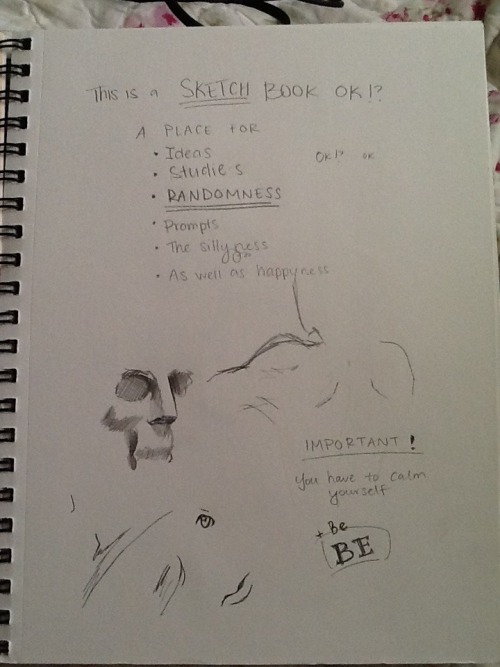 THIS IS A SKETCH BOOK OK!?
A PLACE FOR
• Ideas
• Studies
• RANDOMNESS
• Prompts
• The sillyness
• As well as happyness
OK!? OK
IMPORTANT!
You have to calm
yourself
+ Be
BE